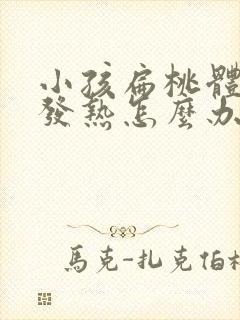 小孩扁桃體
發熱怎麼办
馬克-扎克伯格